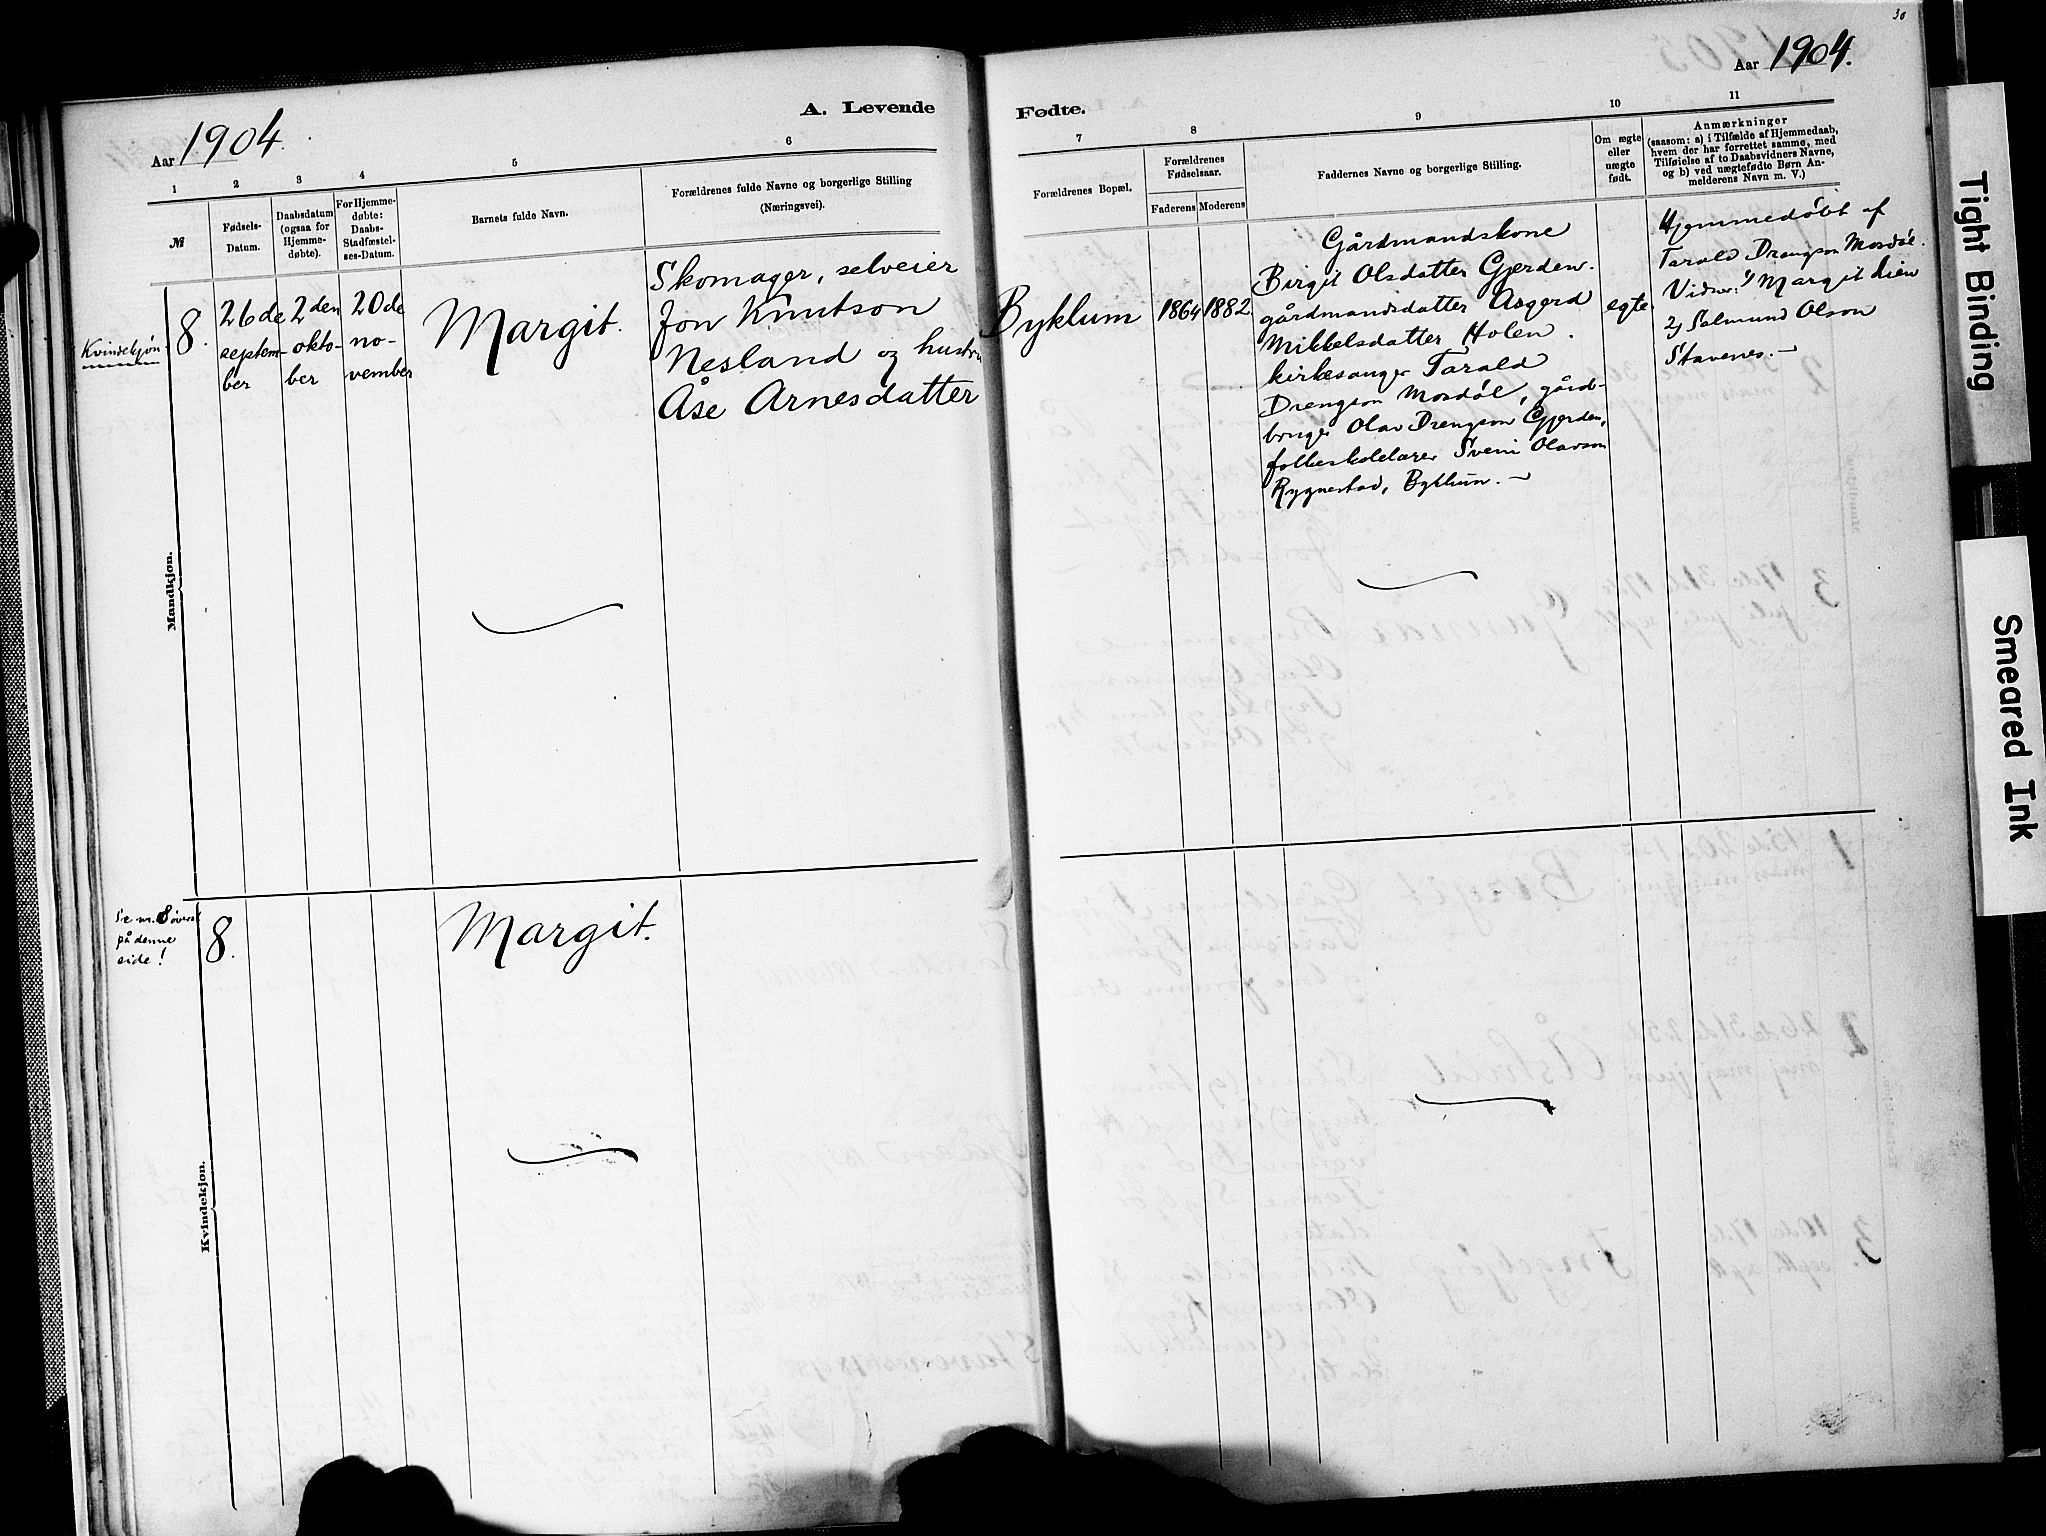 30
Aar 1904.
A. Levende
Fødte.
Aar 1904.
1 2 3 4 5 6
7 8 9 10 11
№
Fødsels-
Datum.
Daabsdatum
(ogsaa for
Hjemme-
døbte).
For Hjemme-
døbte:
Daabs-
Stadfæstel-
ses-Datum.
Barnets fulde Navn.
Forældrenes fulde Navne og borgerlige Stilling
(Næringsvei).
Forældrenes Bopæl.
Forældrenes
Fødselsaar.
Faderens Moderens
Faddernes Navne og borgerlige Stilling.
Om ægte
eller
uægte
født.
Anmærkninger
(saasom: a) i Tilfælde af Hjemmedaab,
hvem der har forrettet samme, med
Tilføielse af to Daabsvidners Navne,
og b) ved uægtefødte Børn An-
melderens Navn m. V.)
Kvindekjøn
8.
26de
septem-
ber
2den
okto-
ber
20de
no-
vember
Margit.
Skomager, selveier
Jon Knutson
Nesland og hustru
Åse Arnesdatter
Byklum
1864
1882
Gårdmandskone
Birgit Olsdatter Gjerden.
gårdmandsdatter Asgerd
Mikkelsdatter Holen.
kirkesanger Tarald
Drengson Mosdøl, gård-
bruger Olav Drengson Gjerden,
folkeskolelærer Svein Olavson
Rygnestad, Byklum. —
egte.
Hjemmedøbt af
Tarald Drengson Mosdøl.
Vidner: 1) Margit Lien
2) Salmund Olson
Stavenes. —
Mandkjøn.
Se nr. 8 øverst
på denne
side!
8.
Margit.
Kvindekjøn.
Tight Binding
Smeared Ink